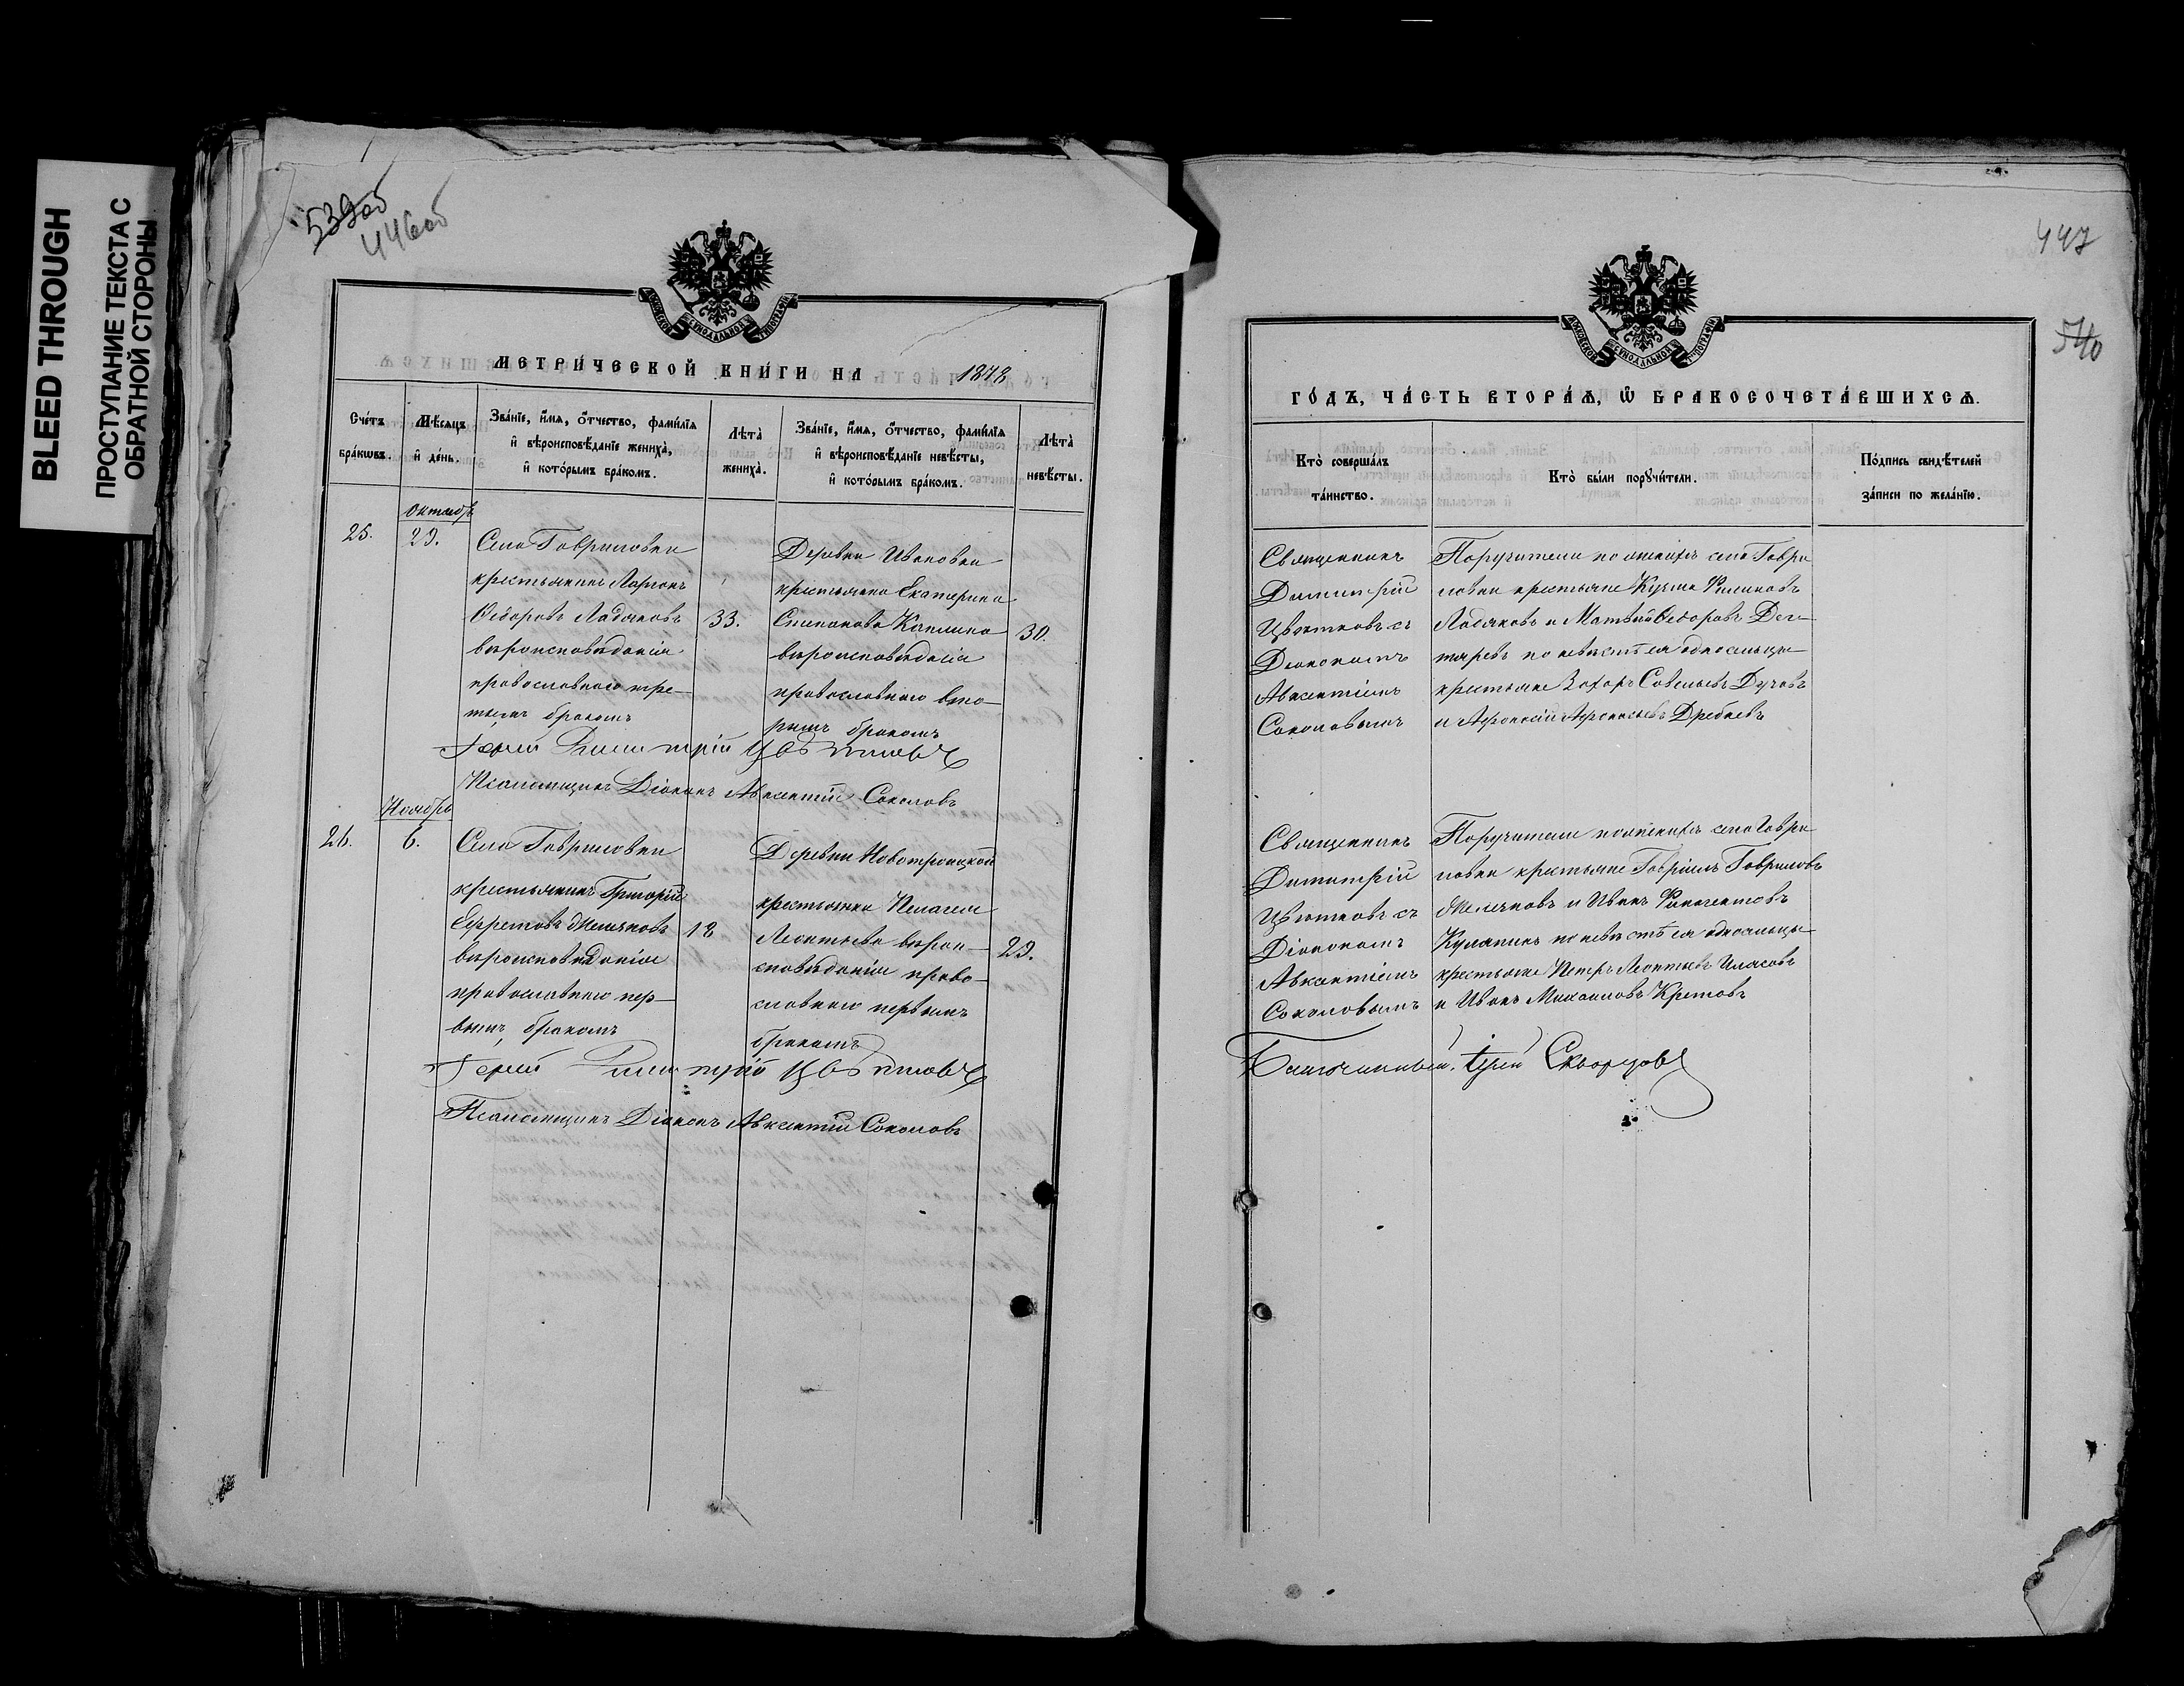 BLEED THROUGH
ПРОСТУПАНИЕ ТЕКСТА С
ОБРАТНОЙ СТОРОНЫ
539об
446об
МОСКОВСКОЙ СѴНОДАЛЬНОЙ ТИПОГРАФІИ
МЕТРИ́ЧЕСКОЙ КНИ́ГИ НА 1878
Сче́тъ бра́кωвъ.
Мѣ́сяцъ и҆ де́нь.
Зва́нїе, и҆́мѧ, ѻ҆́тчество, фамѝлїѧ
и҆ вѣроисповѣ́данїе жениха̀,
и҆ кото́рымъ бра́комъ.
Лѣта̀ жениха̀.
Зва́нїе, и҆́мѧ, ѻ҆́тчество, фамѝлїѧ
и҆ вѣроисповѣ́данїе невѣ́сты,
и҆ кото́рымъ бра́комъ.
Лѣта̀ невѣ́сты.
Октябрь
25.
29.
Села Гавриловки
крестьянинъ Ларіонъ
Ѳедоровъ Ладяковъ
вѣроисповѣданія
православнаго тре-
тьимъ бракомъ
33.
Деревни Ивановки
крестьянка Екатерина
Степанова
вѣроисповѣданія
православнаго вто-
рымъ бракомъ
30.
Іерей Димитрій Цвѣтковъ
Псаломщикъ Діаконъ Авксентій Соколовъ
Ноябрь
26.
6.
Села Гавриловки
крестьянинъ Григорій
Ефремовъ
вѣроисповѣданія
православнаго пер-
вымъ бракомъ
18
Деревни Новотроицкой
крестьянка Пелагея
Леонтьева вѣрои-
сповѣданія право-
славнаго первымъ
бракомъ
23.
Іерей Димитрій Цвѣтковъ
Псаломщикъ Діаконъ Авксентій Соколовъ
447
540
МОСКОВСКОЙ СѴНОДАЛЬНОЙ ТИПОГРАФІИ
ГО́ДЪ, ЧА́СТЬ ВТОРА́Ѧ, Ѽ БРАКОСОЧЕТА́ВШИХСѦ.
Кто̀ соверша́лъ
та́инство.
Кто̀ бы́ли порꙋчи́тели.
По́дпись свидѣ́телей
за́писи по жела́нїю.
Священникъ
Димитрій
Цвѣтковъ съ
Діакономъ
Авксентіемъ
Соколовымъ
Поручители по женихѣ села Гаври
ловки крестьяне Кузма Филиповъ
Ладяковъ и Матвѣй Ѳедоровъ Дег-
теревъ по невѣстѣ ея односельцы
крестьяне Захаръ Савельевъ
и Афонасій Афонасьевъ
Священникъ
Димитрій
Цвѣтковъ съ
Діакономъ
Авксентіемъ
Соколовымъ
Поручители по женихѣ села Гаври
ловки крестьяне Гавріилъ Гавриловъ
и Иванъ
по невѣстѣ ея односельцы
крестьяне Петръ Леонтьевъ
и Иванъ Михаиловъ Кретовъ
Благочинный, Іерей Скворцовъ